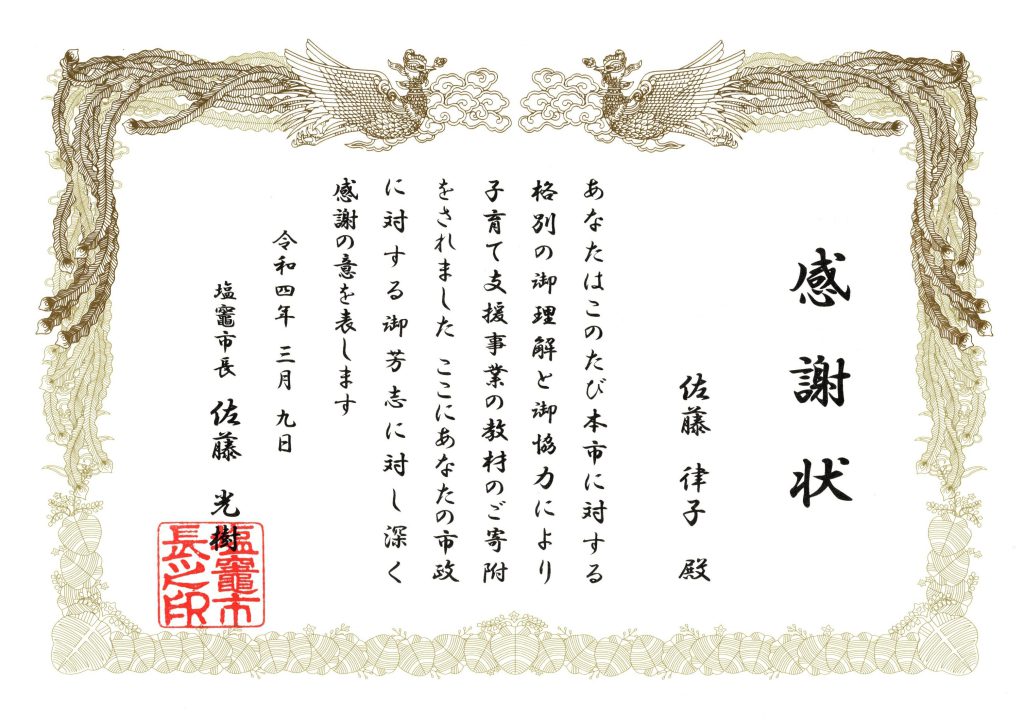 感謝状
佐藤 律子 殿
あなたはこのたび本市に対する
格別の御理解と御協力により
子育て支援事業の教材のご寄附
をされました ここにあなたの市政
に対する御芳志に対し深く
感謝の意を表します
令和四年 三月 九日
塩竈市長 佐藤 光樹
塩竈市
長之印